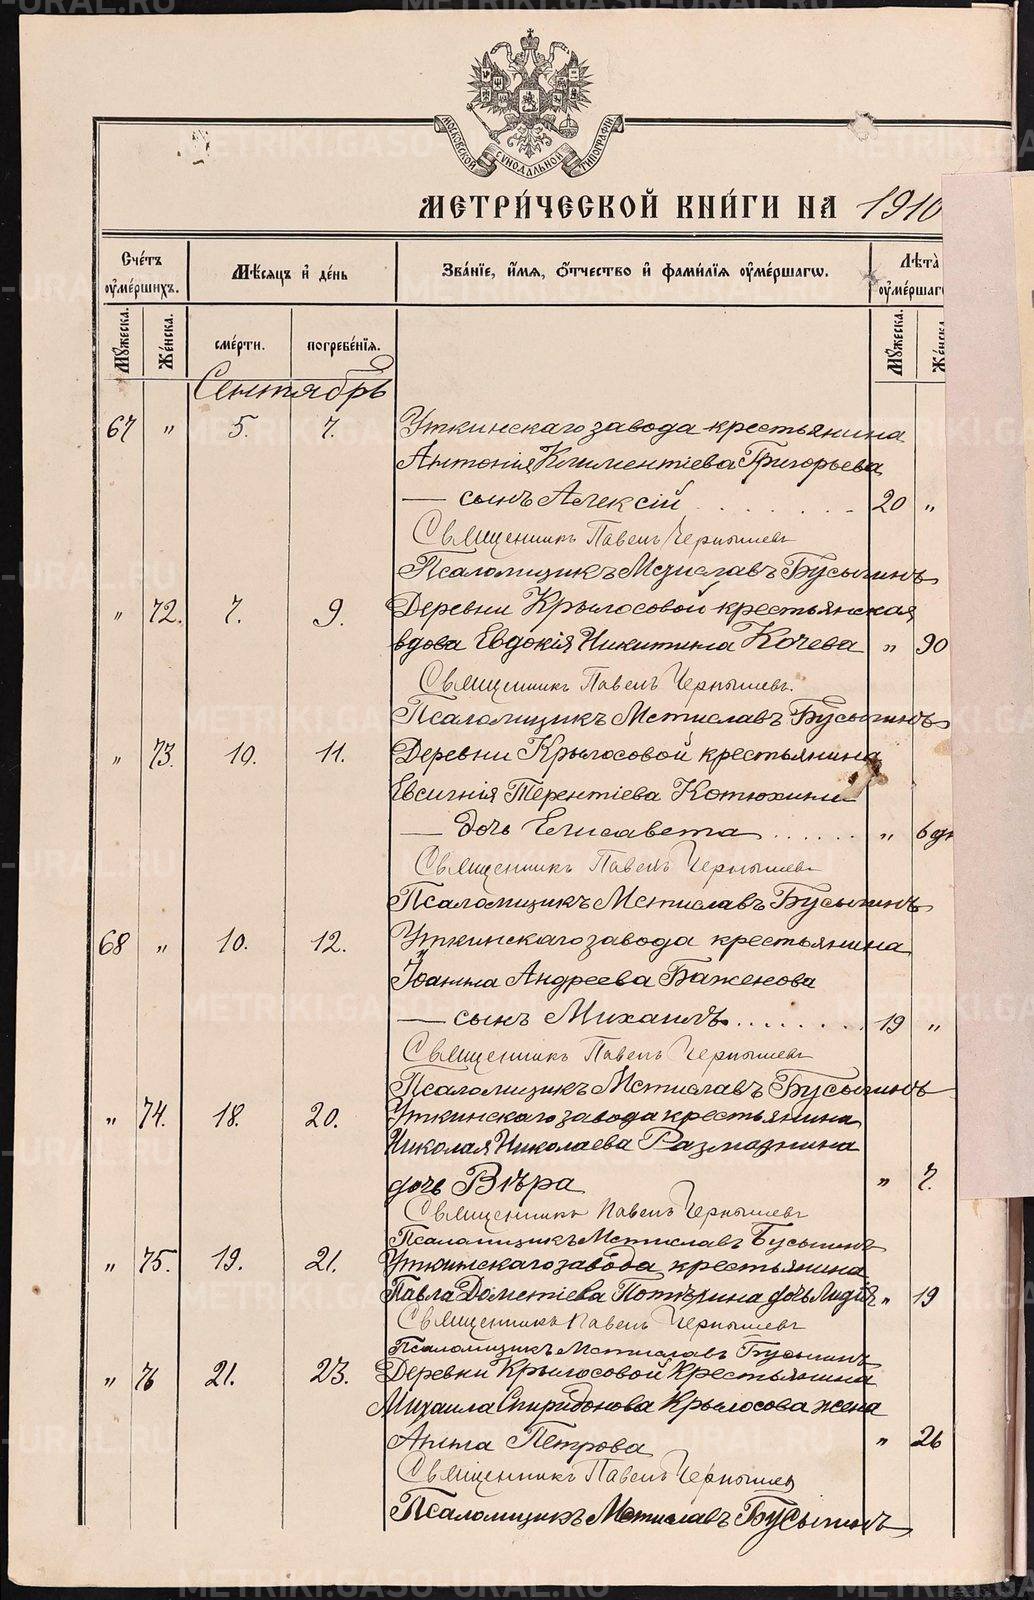 МОСКОВСКОЙ СѴНОДАЛЬНОЙ ТИПОГРАФІИ
МЕТРИ́ЧЕСКОЙ КНИ́ГИ НА 1910
Сче́тъ ᲂумершихъ.
Мѣсяцъ и день
Зва́нїе, и́мя, ѻ́тчество и фами́лїя ᲂуме́ршагѡ.
Лѣта̀
Мꙋжеска.
Же́нска.
сме́рти.
погребе́нїя.
Мꙋжеска.
Сентябрь
67 " 5. 7. Уткинскаго завода крестьянина
Антонія Климентіева Григорьева
— сынъ Алексій . . . . . . . . 20 "
Священникъ Павелъ Чернышевъ
Псаломщикъ Мстиславъ Бусыгинъ
" 72. 7. 9. Деревни Крылосовой крестьянская
вдова Евдокія Никитина Кочева " 90
Священникъ Павелъ Чернышевъ.
Псаломщикъ Мстиславъ Бусыгинъ
" 73. 10. 11. Деревни Крылосовой крестьянина
Евсигнія Терентіева Котюхина
— дочь Елисавета . . . . . . " 6 дн
Священникъ Павелъ Чернышевъ
Псаломщикъ Мстиславъ Бусыгинъ
68 " 10. 12. Уткинскаго завода крестьянина
Іоанна Андреева Баженова
— сынъ Михаилъ. . . . . . . . 19 "
Священникъ Павелъ Чернышевъ
Псаломщикъ Мстиславъ Бусыгинъ
" 74. 18. 20. Уткинскаго завода крестьянина
Николая Николаева
дочь Вѣра " 7.
Священникъ Павелъ Чернышевъ
Псаломщикъ Мстиславъ Бусыгинъ
" 75. 19. 21. Уткинскаго завода крестьянина
Павла Дометіева Потѣрина дочь Лидія " 19
Священникъ Павелъ Чернышевъ
Псаломщикъ Мстиславъ Бусыгинъ
" 76 21. 23. Деревни Крылосовой Крестьянина
Михаила Спиридонова Крылосова жена
Анна Петрова " 26
Священникъ Павелъ Чернышевъ
Псаломщикъ Мстиславъ Бусыгинъ
METRIKI.GASO-URAL.RU